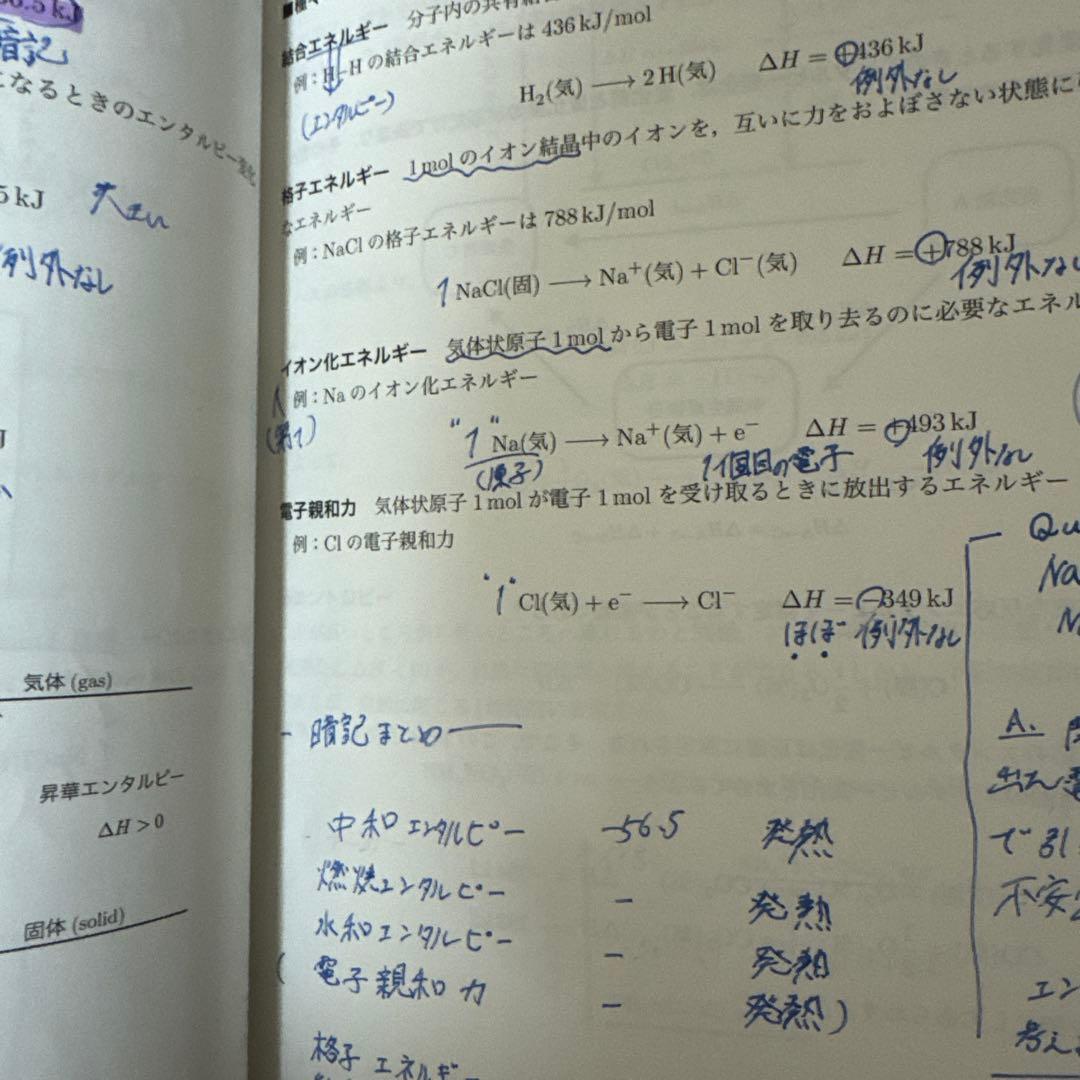 暗記
になるときのエンタルピー変化
5 kJ 大きい
例外なし
気体 (gas)
昇華エンタルピー
ΔH > 0
固体 (solid)
結合エネルギー 分子内の共有結
例：H-Hの結合エネルギーは 436 kJ/mol
H₂(気) ⟶ 2H(気) ΔH = +436 kJ
(エンタルピー) 例外なし
格子エネルギー 1 mol のイオン結晶中のイオンを，互いに力をおよぼさない状態に
なエネルギー
例：NaCl の格子エネルギーは 788 kJ/mol
1 NaCl(固) ⟶ Na⁺(気) + Cl⁻(気) ΔH = +788 kJ
例外なし
イオン化エネルギー 気体状原子 1 mol から電子 1 mol を取り去るのに必要なエネル
例：Na のイオン化エネルギー
(第1) "1" Na(気) ⟶ Na⁺(気) + e⁻ ΔH = +493 kJ
(原子) 1個目の電子 例外なし
電子親和力 気体状原子 1 mol が電子 1 mol を受け取るときに放出するエネルギー
例：Cl の電子親和力
"1" Cl(気) + e⁻ ⟶ Cl⁻ ΔH = −349 kJ
ほぼ 例外なし
- 暗記まとめ
中和エンタルピー -56.5 発熱
燃焼エンタルピー - 発熱
水和エンタルピー - 発熱
( 電子親和力 - 発熱 )
格子エネルギー
Qu
Na
A.
で引
不安
エン
考え